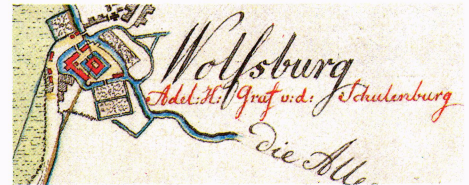 Wolfsburg
Adel: H: Graf v: d: Schulenburg
die Alle